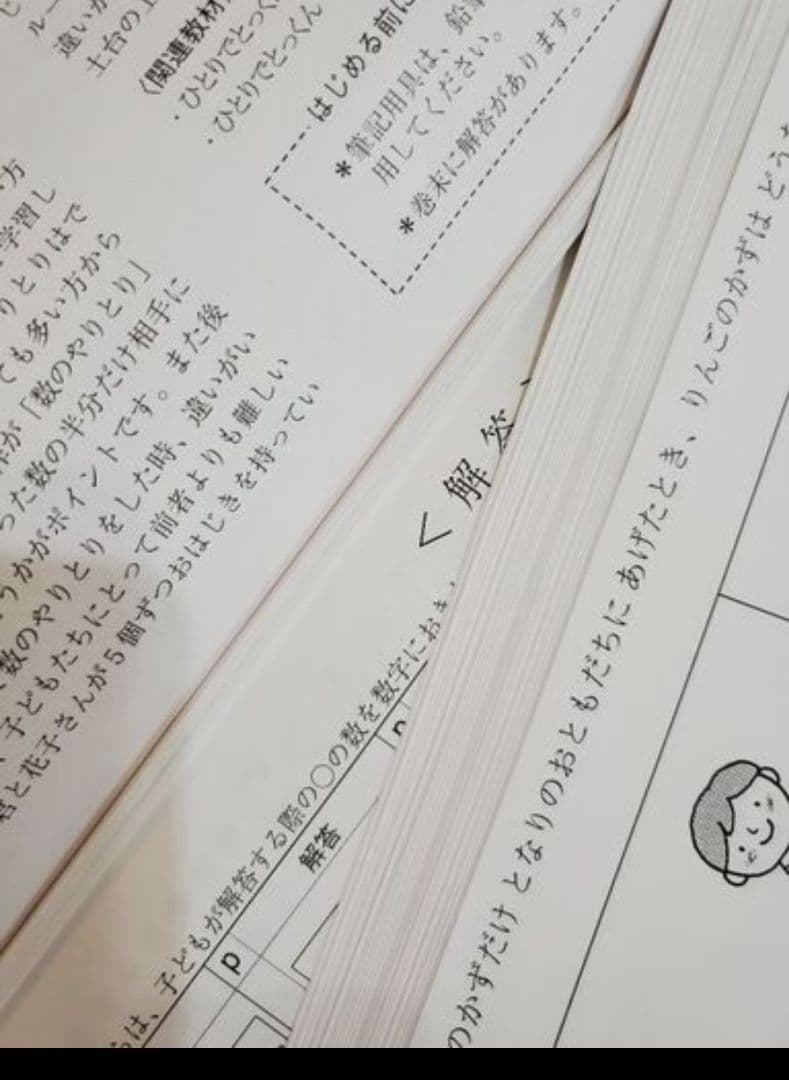 ルー
違いが
土台の上
〈関連教材
・ひとりでとっく
・ひとりでとっくん
はじめる前に
*筆記用具は、鉛筆
用してください。
*巻末に解答があります。
方
学習し
りとりはで
ても多い方から
が「数のやりとり」
った数の半分だけ相手に
うかがポイントです。また後
数のやりとりをした時、違いがい
、子どもたちにとって前者よりも難しい
君と花子さんが5個ずつおはじきを持ってい
<解答
らは、子どもが解答する際の○の数を数字におき
p
解答
p
のかずだけ となりのおともだちに あげたとき、りんごのかずは どう